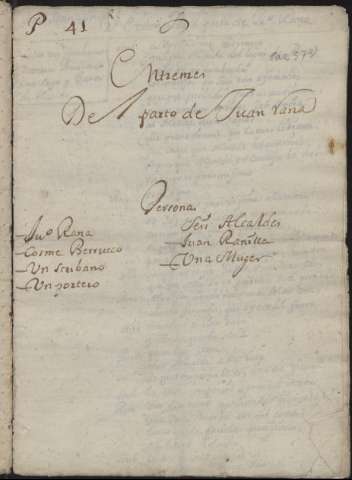 P 41
Entremes
Del parto de Juan rana
Persona
Juº Rana
Cosme Berrucco
Un scribano
Un portero
Seis Alcaldes
Juan Ranilla
Una Muger